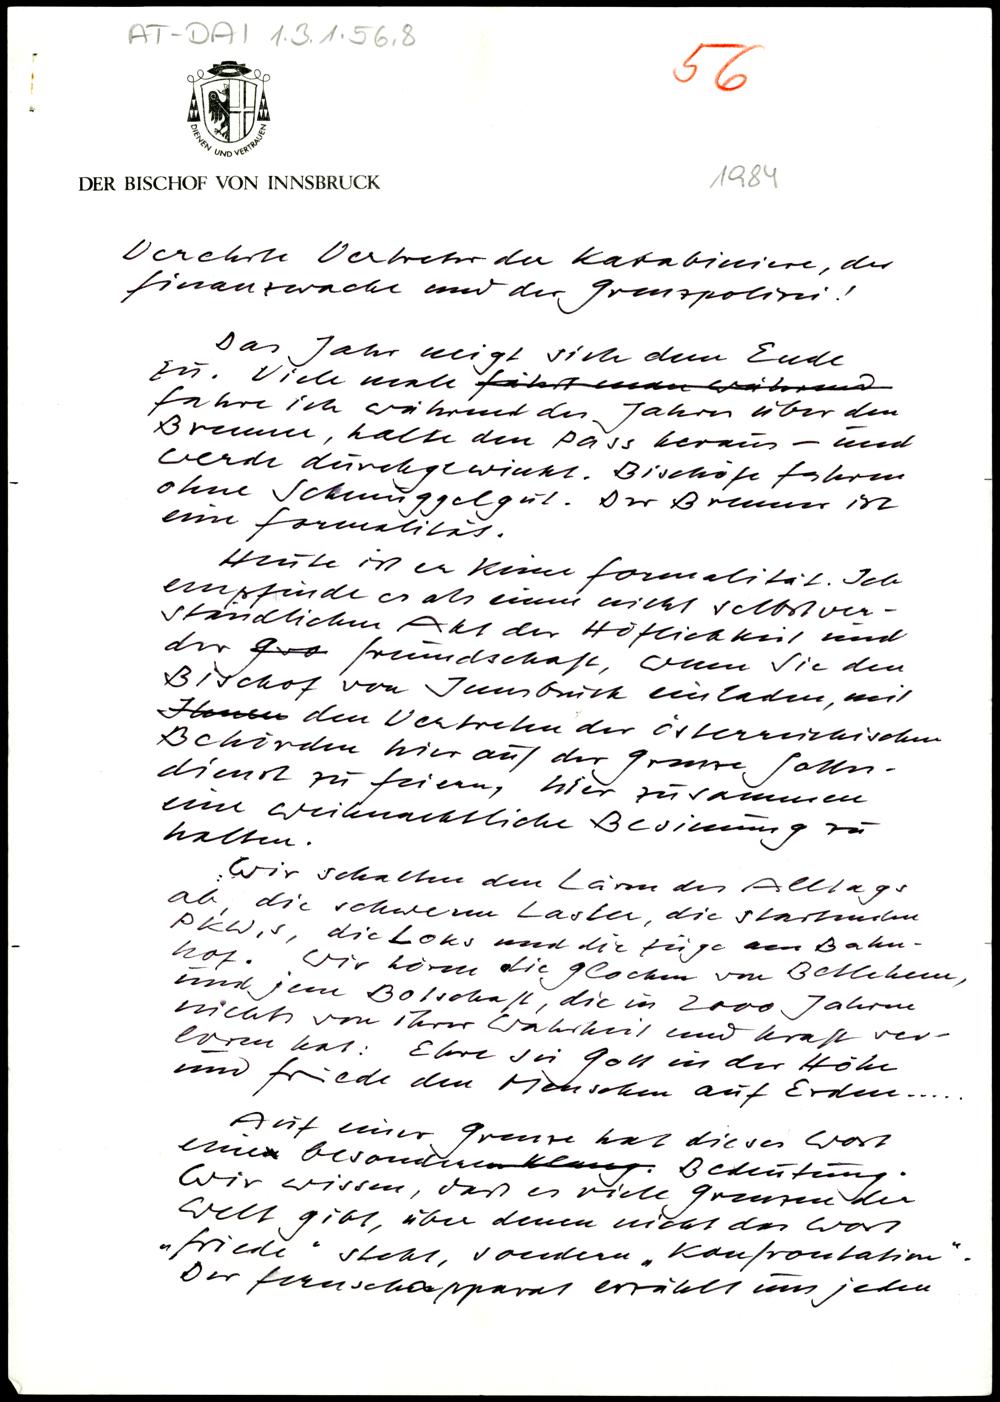 AT-DAI 1.3.1.56.8
56
DIENEN UND VERTRAUEN
DER BISCHOF VON INNSBRUCK
1984
Verehrte Vertreter der Karabiniere, der
Finanzwache und der Grenzpolizei!
Das Jahr neigt sich dem Ende
zu. Viele male fährt man während
fahre ich während des Jahres über den
Brenner, halte den Pass heraus – und
werde durchgewinkt. Bischöfe fahren
ohne Schmuggelgut. Der Brenner ist
eine Formalität.
Heute ist er keine Formalität. Ich
empfinde es als einen nicht selbstver-
ständlichen Akt der Höflichkeit und
der Gro Freundschaft, wenn Sie den
Bischof von Innsbruck einladen, mit
Ihnen den Vertretern der österreichischen
Behörden hier auf der Grenze Gottes-
dienst zu feiern, hier zusammen
eine weihnachtliche Besinnung zu
halten.
Wir schalten den Lärm des Alltags
ab, die schweren Laster, die startenden
PKW,s, die Loks und die Züge am Bahn-
hof. Wir hören die Glocken von Betlehem,
und jene Botschaft, die in 2000 Jahren
nichts von ihrer Wahrheit und Kraft ver-
loren hat: Ehre sei Gott in der Höhe
und Friede den Menschen auf Erden.....
Auf einer Grenze hat dieses Wort
eine besonderen Klang. Bedeutung.
Wir wissen, dass es viele Grenzen der
Welt gibt, über denen nicht das Wort
„Friede" steht, sondern „Konfrontation".
Der Fernsehapparat erzählt uns jeden